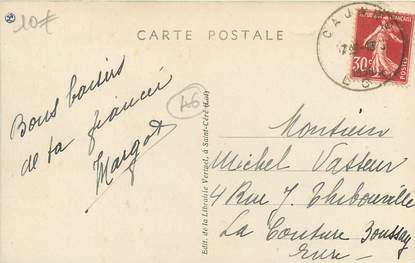 10€
CARTE POSTALE
CAJARC
30c
POSTES
46
Bons baisers
de ta fiancée
Margot
Edit. de la Librairie Vertuel, à Saint-Céré (Lot)
Monsieur
Michel Vasseur
4 Rue J. Thibouville
La Couture Boussey
Eure